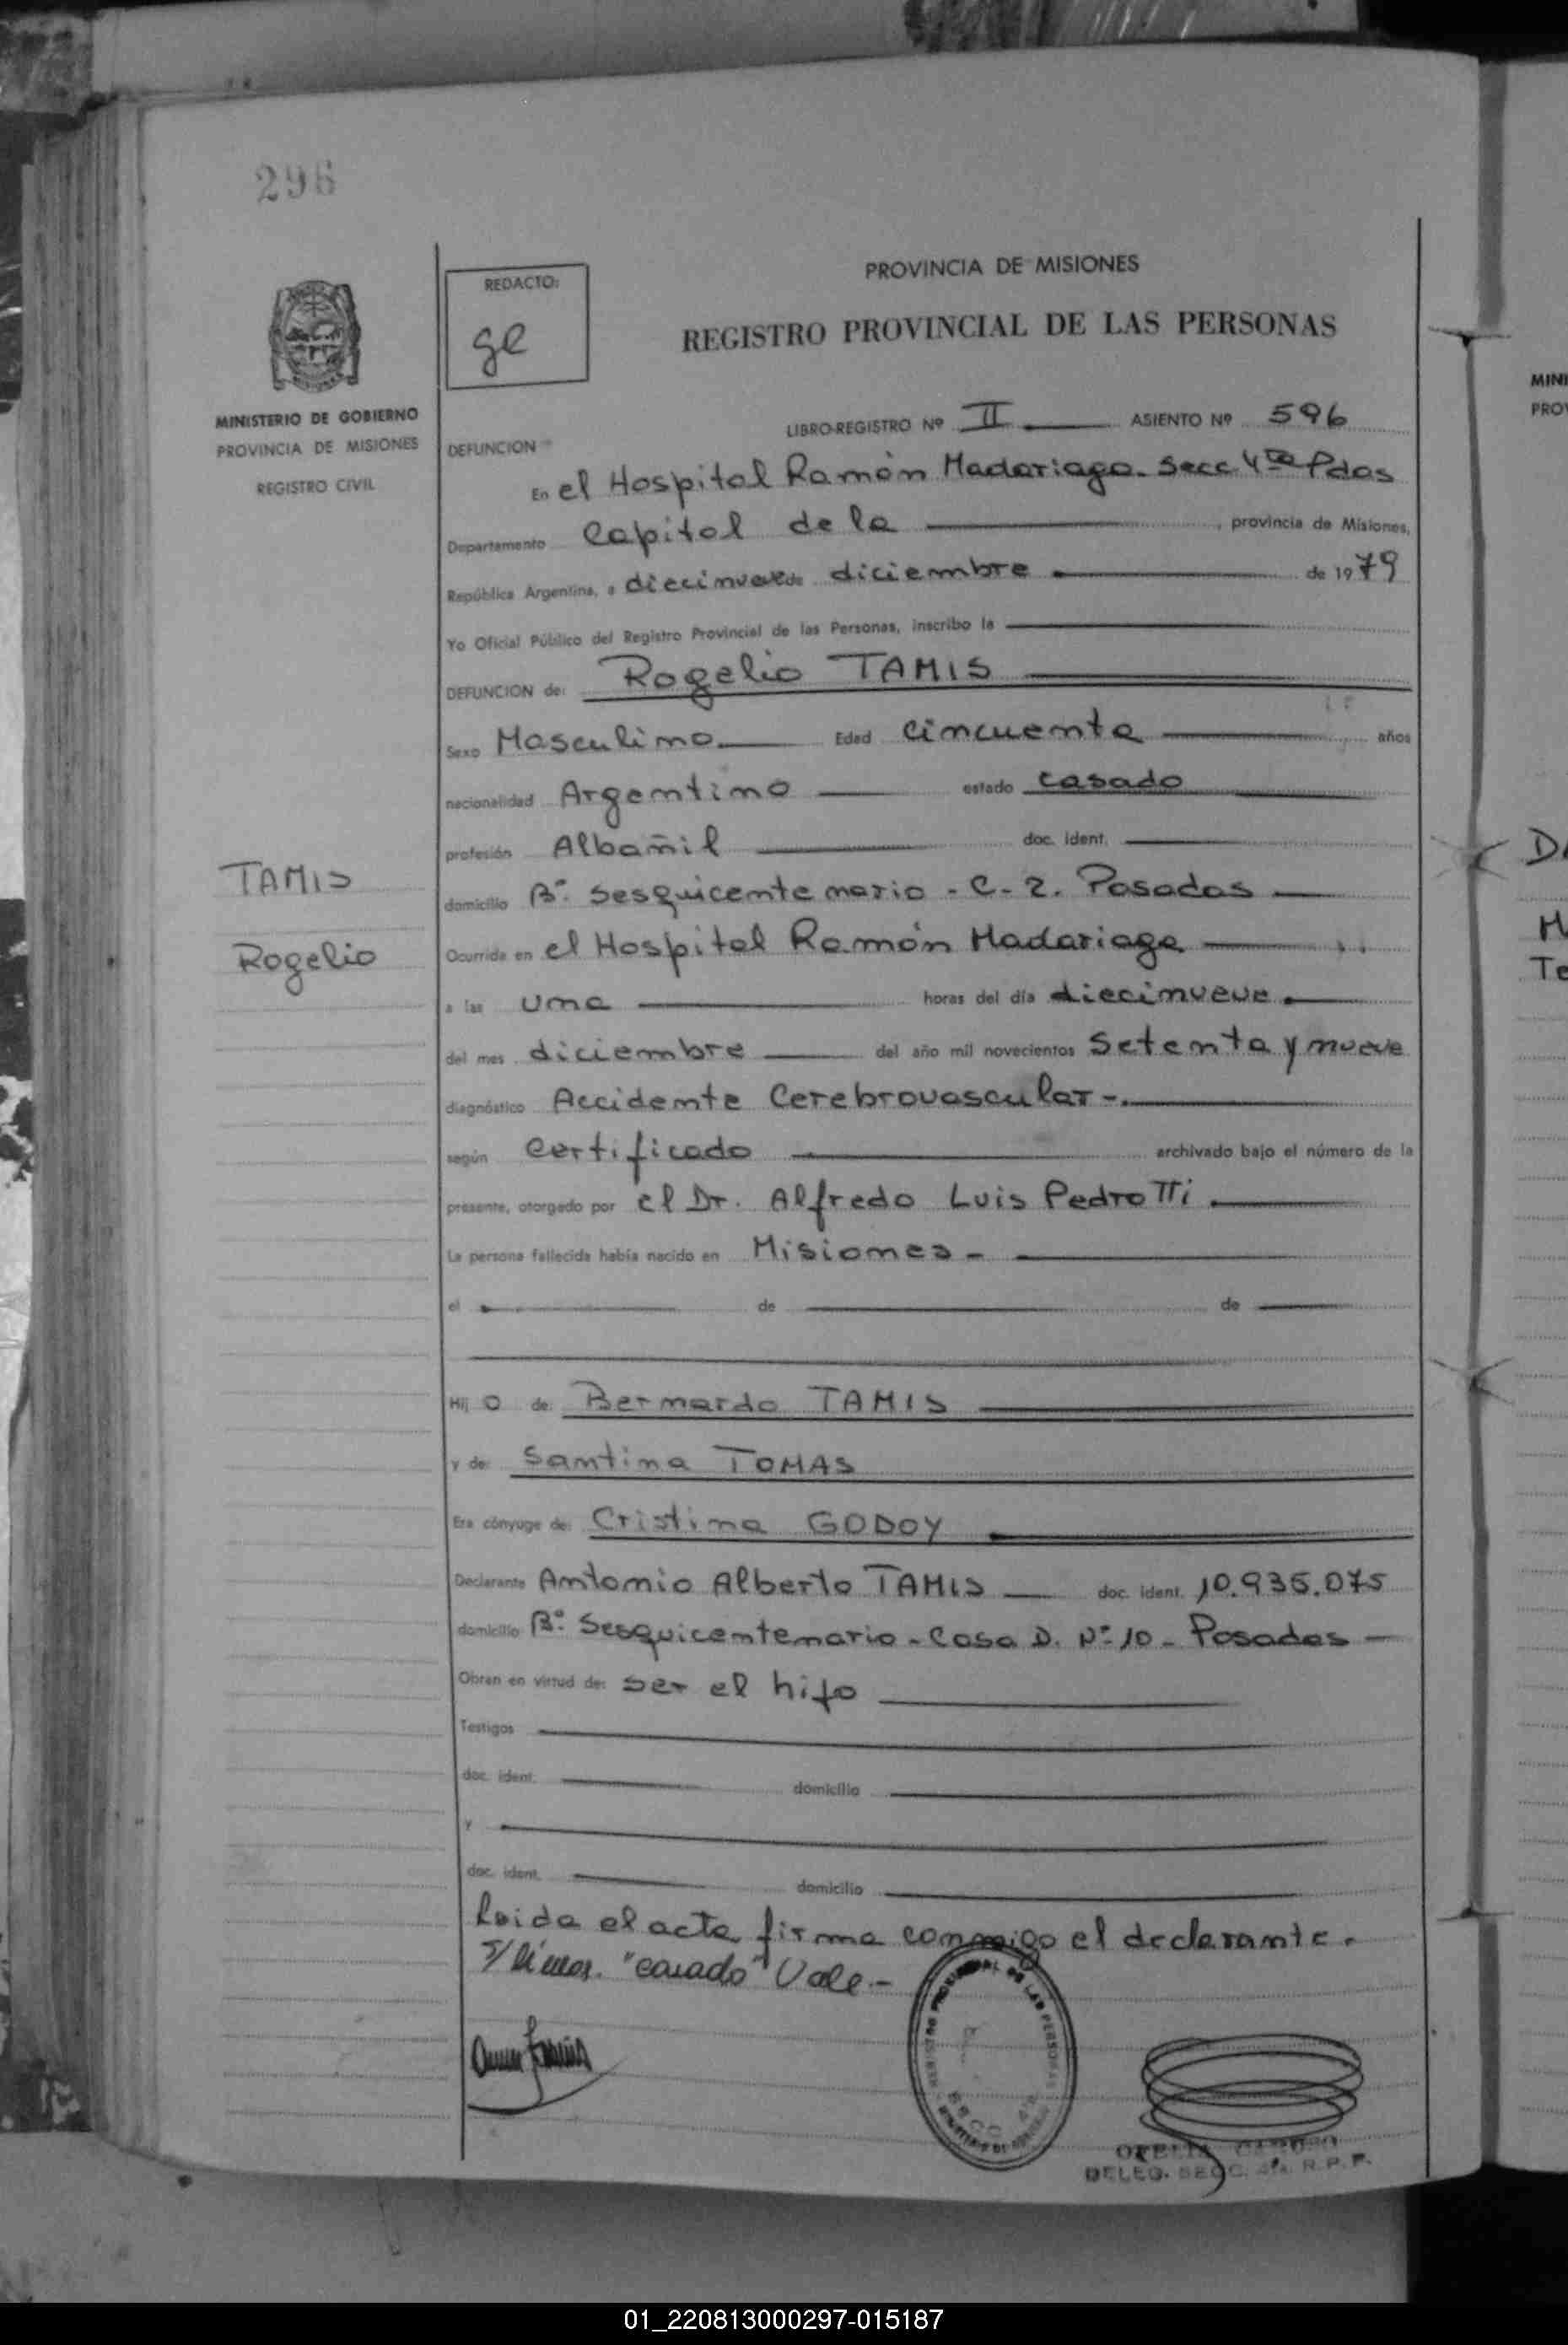 296
PROVINCIA DE MISIONES
REDACTO:
ge
REGISTRO PROVINCIAL DE LAS PERSONAS
MINISTERIO DE GOBIERNO
PROVINCIA DE MISIONES
REGISTRO CIVIL
LIBRO-REGISTRO Nº II ASIENTO Nº 596
DEFUNCION
En el Hospital Ramón Madariaga. Secc 4ta Pdas
Departamento Capital de la, provincia de Misiones,
República Argentina, a diecinueve de diciembre de 1979
Yo Oficial Público del Registro Provincial de las Personas, inscribo la
DEFUNCION de: Rogelio TAMIS
Sexo Masculino Edad cincuenta años
nacionalidad Argentino estado casado
profesión Albañil doc. ident.
TAMIS
Rogelio
domicilio Bº. Sesquicentenario - C- 2. Posadas
Ocurrida en el Hospital Ramón Madariaga
a las una horas del día diecinueve.
del mes diciembre del año mil novecientos setenta y nueve
diagnóstico Accidente Cerebrovascular-.
según certificado archivado bajo el número de la
presente, otorgado por el Dr. Alfredo Luis Pedrotti.
La persona fallecida había nacido en Misiones -
el de de
Hij o de: Bernardo TAMIS
y de: Santina TOMAS
Era cónyuge de: Cristina GODOY
Declarante Antonio Alberto TAMIS doc. ident. 10.935.075
domicilio Bº. Sesquicentenario - Casa D. Nº 10 - Posadas -
Obran en virtud de: ser el hijo
Testigos
doc. ident. domicilio
y
doc. ident. domicilio
Leida el acta firma conmigo el declarante.
S/ líneas. "casado" Vale.-
REGISTRO PROVINCIAL DE LAS PERSONAS
SECC. 4ta
OFELIA CARDOZO
DELEG. SECC. 4ta. R. P. P.
MINI
PRO
DA
M
Te
01_220813000297-015187